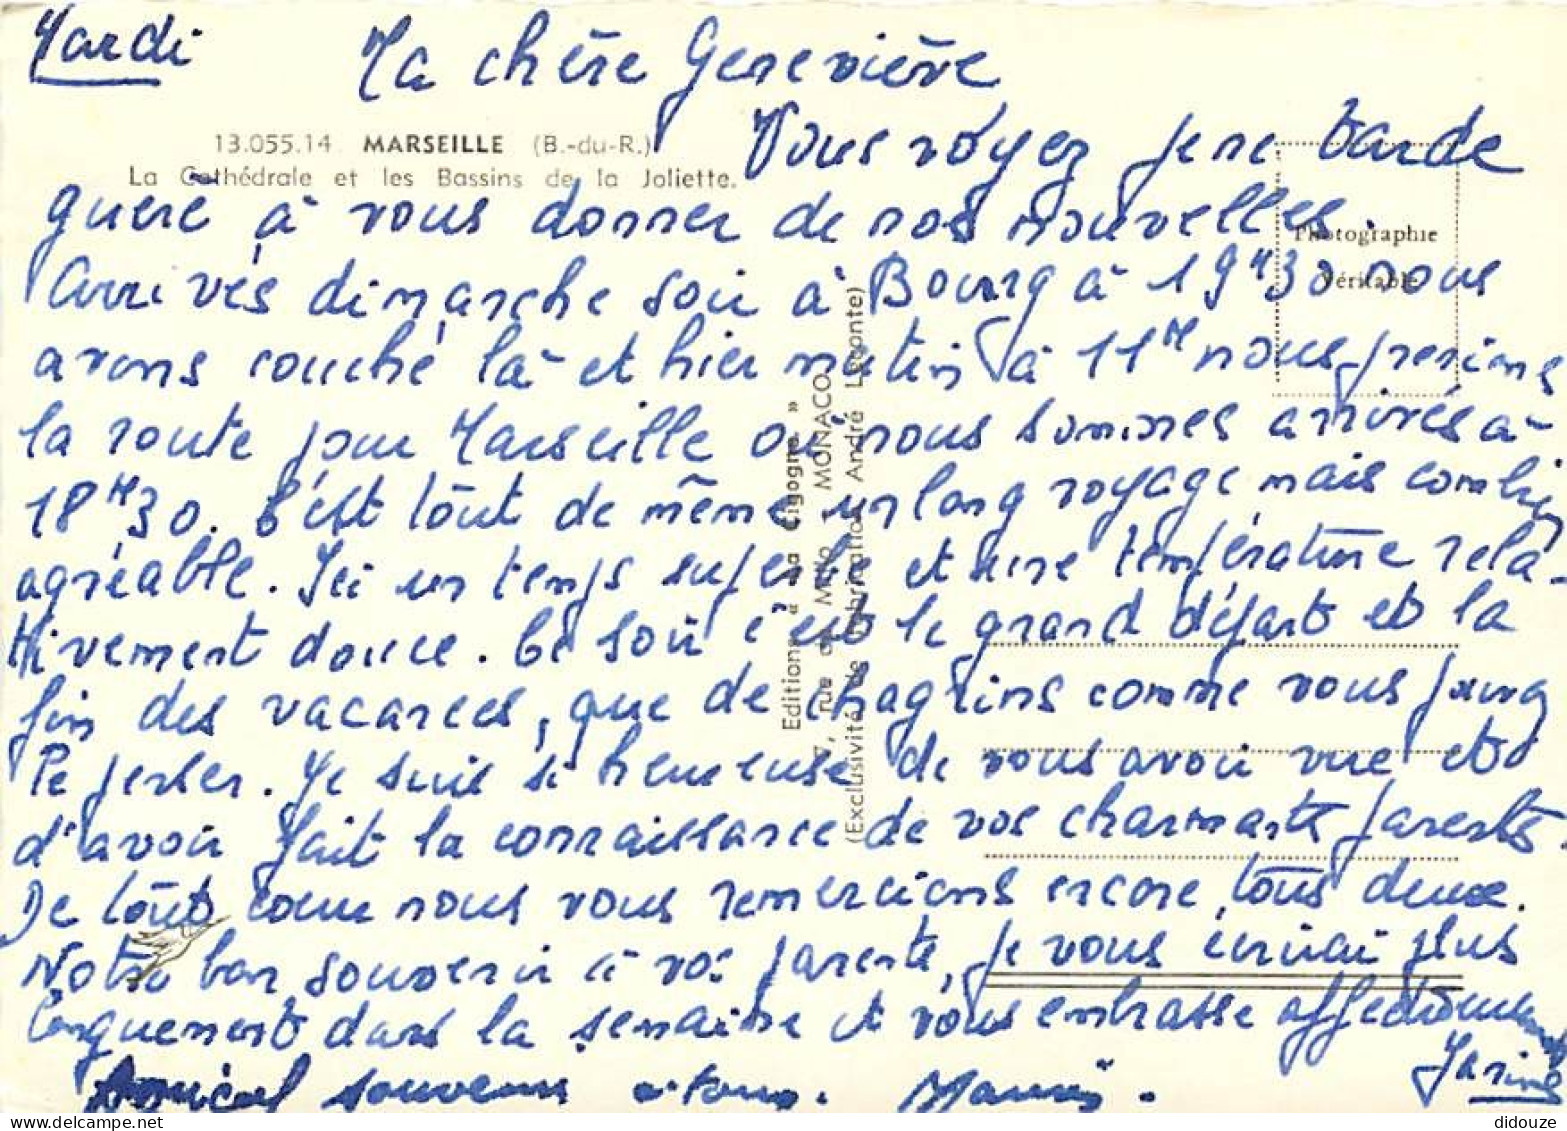 Mardi
Ma chère Geneviève
13.055.14 MARSEILLE (B.-du-R.)
La Cathédrale et les Bassins de la Joliette.
Vous voyez je ne tarde
guère à vous donner de nos nouvelles
Photographie
Véritable
Arrivés dimanche soir à Bourg à 19H30 nous
avons couché là et hier matin à 11H nous prenions
la route pour Marseille où nous sommes arrivés à
18H30. C'est tout de même un long voyage mais combien
agréable. Ici un temps superbe et une température rela-
tivement douce. Ce soir c'est le grand départ et la
fin des vacances, que de chagrins comme vous pouvez
le penser. Je suis si heureuse de vous avoir vue et
d'avoir fait la connaissance de vos charmants parents.
De tout cœur nous vous remercions encore tous deux.
Notre bon souvenir à vos parents, je vous écrirai plus
longuement dans la semaine et vous embrasse affectueusement
souvenir à tous.
Editions « La Cigogne »
7, rue de Millo - MONACO
(Exclusivité de Fabrication André Leconte)
didouze